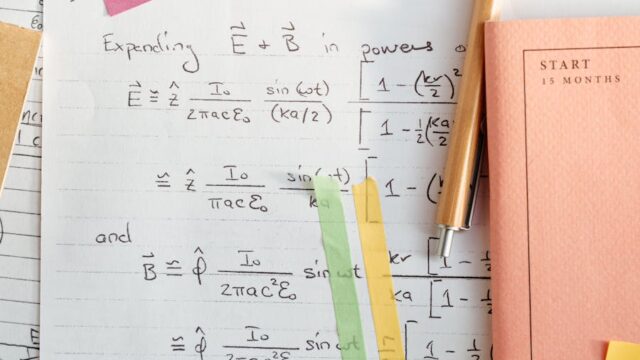 Expanding E⃗ + B⃗ in powers o
E⃗ ≅ ẑ I₀/2πacƐ₀ sin(ωt)/(ka/2) [1 - (kr/2)²/[1 - ½(ka
≅ ẑ I₀/πacƐ₀ sin(ωt)/ka [1 - (
and
B⃗ ≅ φ̂ I₀/2πac²Ɛ₀ sin ωt kr/ka [1 - ½/[1 - ½
≅ φ̂ I₀/2πac²Ɛ sin ωt [1 -
START
15 MONTHS